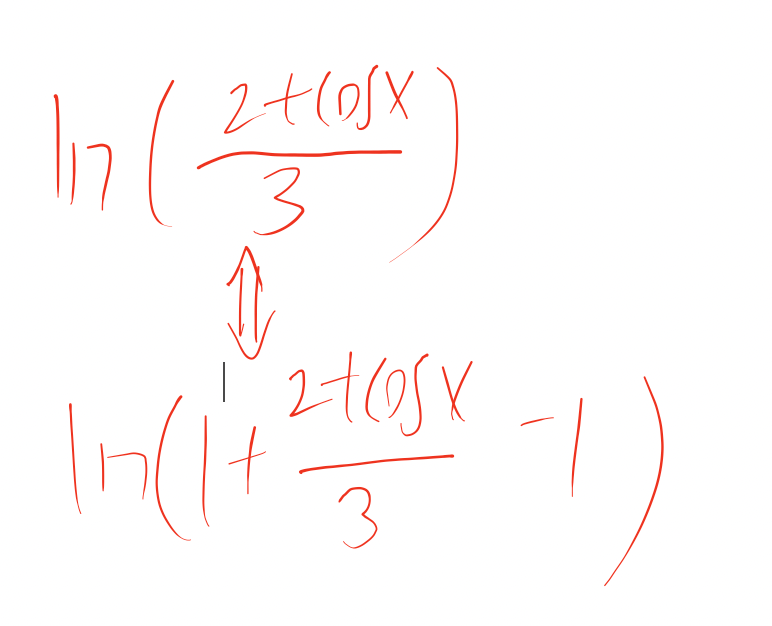 ln(2+cosx/3)
⇕
ln(1+2+cosx/3-1)